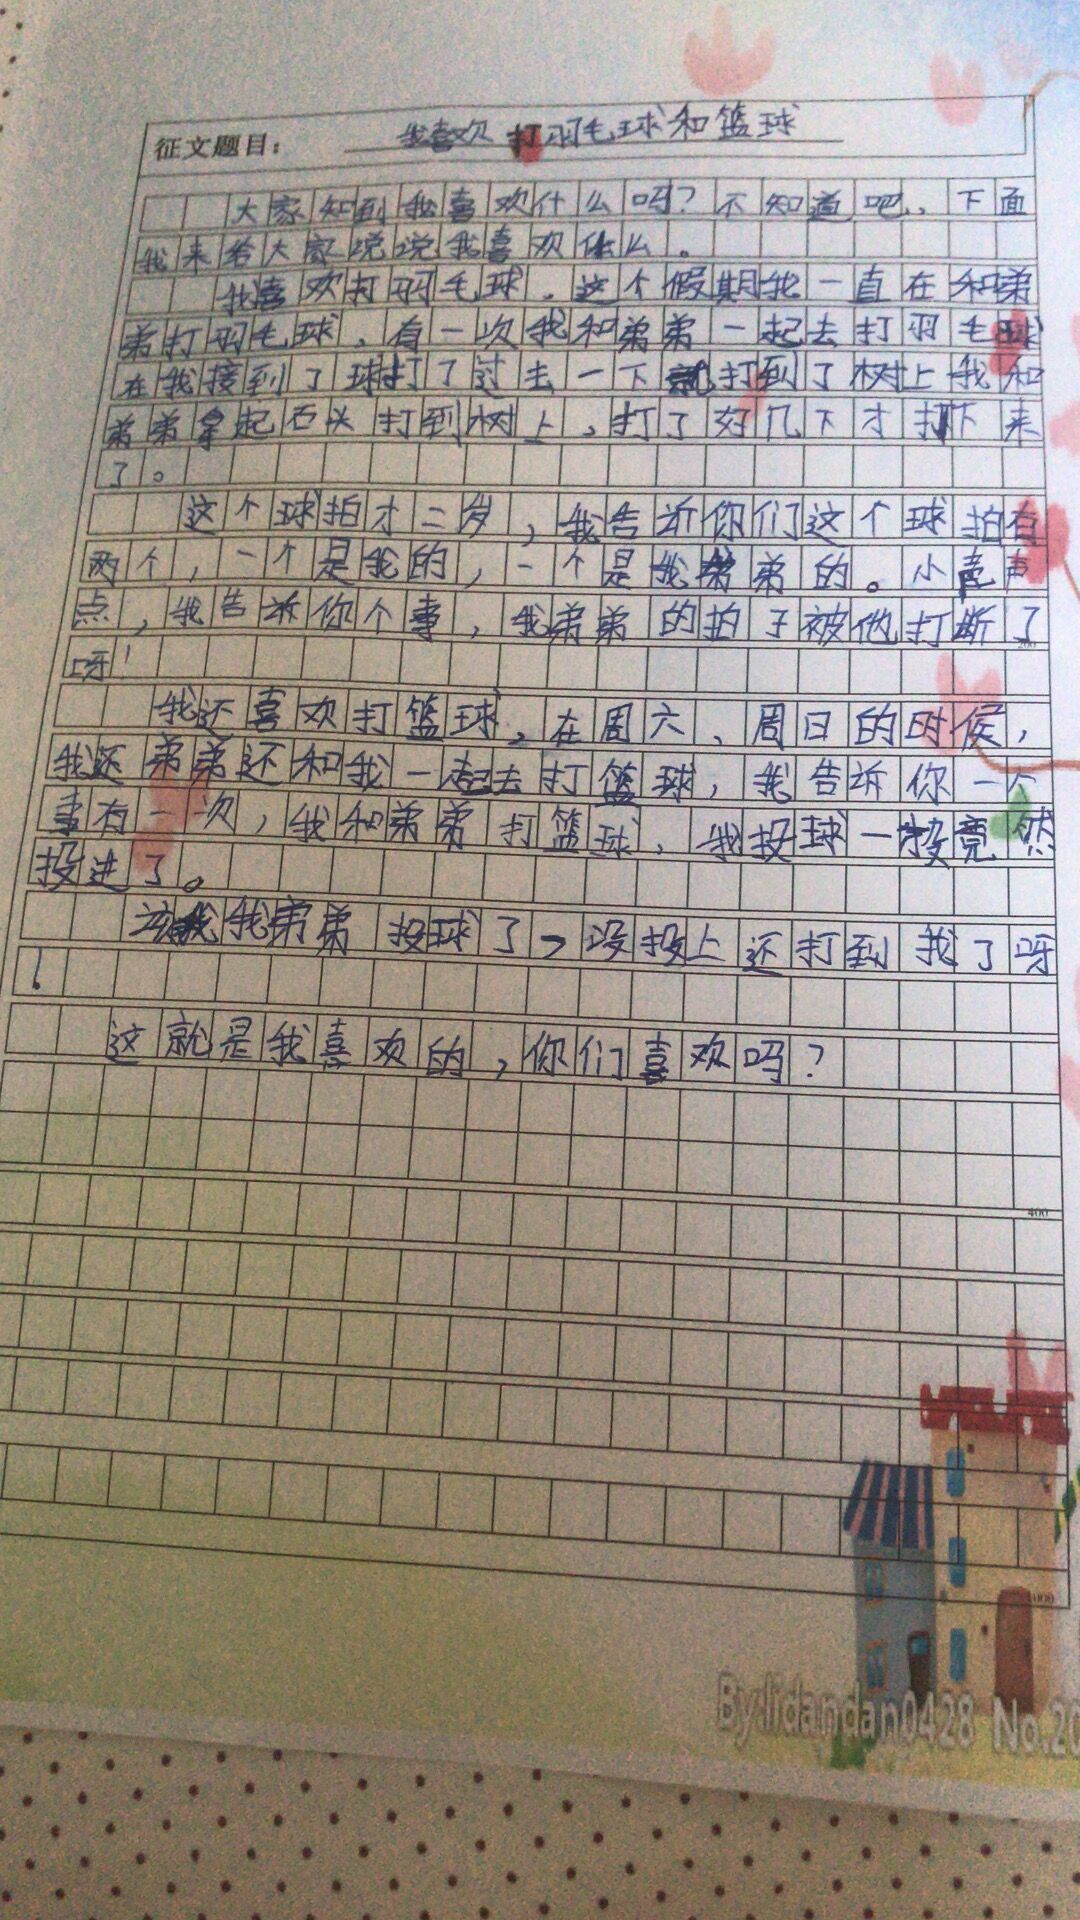 征文题目： 我喜欢打羽毛球和篮球
大家知到我喜欢什么吗？不知道吧、下面
我来给大家说说我喜欢什么。
我喜欢打羽毛球、这个假期我一直在和弟
弟打羽毛球、有一次我和弟弟一起去打羽毛球
在我接到了球打了过去一下就打到了树上我和
弟弟拿起石头打到树上，打了好几下才打下来
了。
这个球拍才二岁，我告诉你们这个球拍有
两个，一个是我的，一个是我弟弟的。小声
点，我告诉你个事，我弟弟的拍子被他打断了
200
呀！
我还喜欢打篮球，在周六、周日的时候，
我还弟弟还和我一起去打篮球，我告诉你一个
事有一次，我和弟弟打篮球，我投球一投竟然
投进了。
该我弟弟投球了，没投上还打到我了呀
！
这就是我喜欢的，你们喜欢吗？
400
By:lidandan0428 No.20